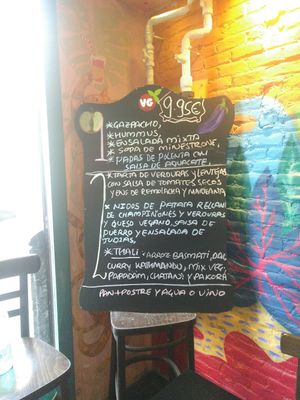 VG 9,95€
1
*GAZPACHO,
*HUMMUS,
*ENSALADA MIXTA
*SOPA DE MINESTRONE,
*PAPAS DE POLENTA CON
SALSA DE AGUACATE,
2
*TARTA DE VERDURAS Y LENTEJAS
CON SALSA DE TOMATOS SECOS
Y ENS DE REMOLACHA Y
* NIDOS DE PATATA RELLENI
DE CHAMPIÑONES Y VERDURAS
Y QUESO VEGANO, SALSA DE
PUERRO Y ENSALADA DE
JUDIAS,
*THALI: ARROZ BASMATI, DAL,
CURRY KATHMANDU, MIX VEG,
POPPADOM, CHATANI Y PAKORA
PAN+POSTRE Y AGUA O VINO